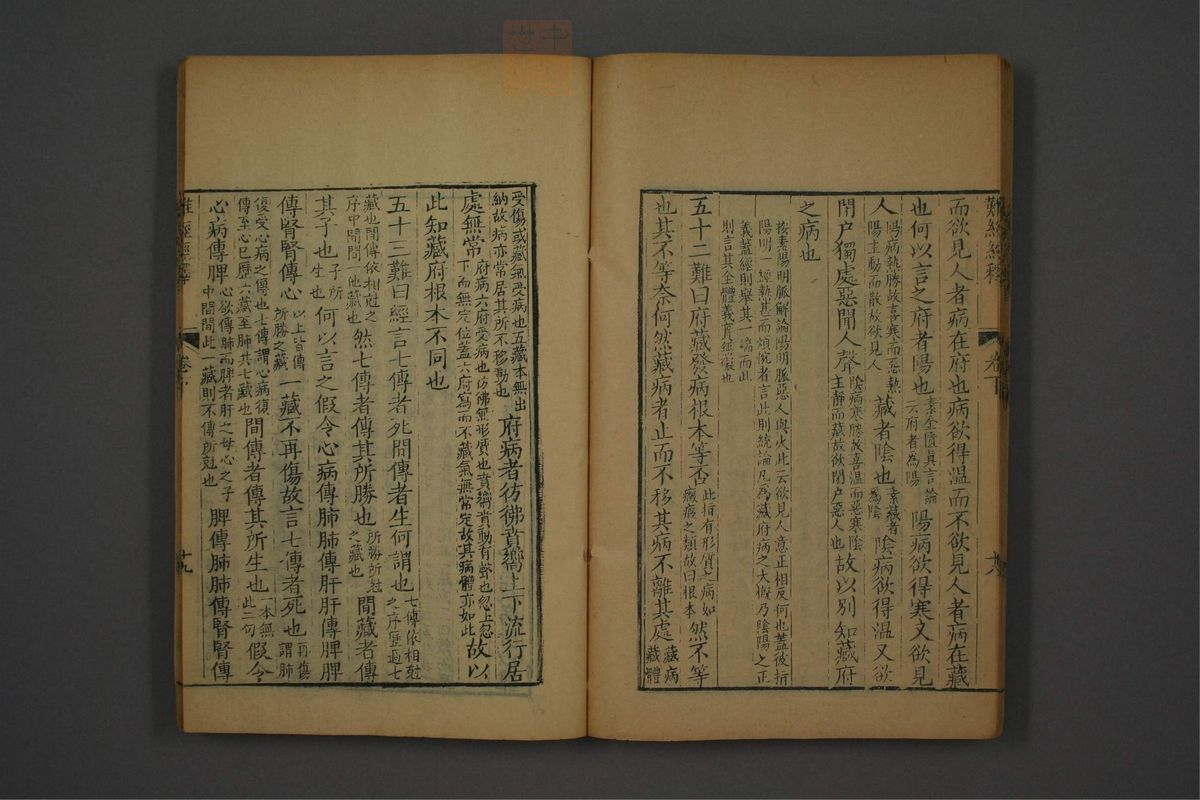 難經經釋
卷下
而欲見人者病在府也病欲得温而不欲見人者病在藏
也何以言之府者陽也素金匱眞言論六府者為陽陽病欲得寒又欲見
人陽病熱勝故喜寒而惡熱陽主動而散故欲見人藏者陰也素藏者為陰陰病欲得温又欲
閉户獨處惡聞人聲陰病寒勝故喜温而惡寒陰主靜而藏故欲閉户惡人也故以别知藏府
之病也
按素陽明脈解論陽明脈惡人與火此云欲見人意正相反何也蓋彼指
陽明一經熱甚而煩惋者言此則統論凡為藏府病之大槪乃陰陽之正
義蓋經則舉其一端而此
則言其全體義實無礙也
五十二難曰府藏發病根本等否此指有形質之病如癥瘕之類故曰根本然不等
也其不等奈何然藏病者止而不移其病不離其處藏病藏體
受傷或藏氣受病也五藏本無出
納故病亦常居其所不移動也府病者彷彿賁嚮上下流行居
處無常府病六府受病也彷彿無形質也賁嚮賁動有聲也忽上忽下而無定位蓋六府寫而不藏氣無常定故其病體亦如此故以
此知藏府根本不同也
五十三難曰經言七傳者死間傳者生何謂也七傳依相尅之序歴過七
藏也間傳依相尅之序中間間一他藏也然七傳者傳其所勝也所勝所尅之藏也間藏者傳
其子也子所生也何以言之假令心病傳肺肺傳肝肝傳脾脾
傳腎腎傳心以上皆傳所勝之藏一藏不再傷故言七傳者死也再傷謂肺
復受心病之傳也七傳謂心病復
傳至心已歴六藏至肺共七藏也間傳者傳其所生也一本無此二句假令
心病傳脾心欲傳肺而脾者肝之母心之子中間間此一藏則不傳所尅也脾傳肺肺傳腎腎傳
難經經釋
卷下
十九